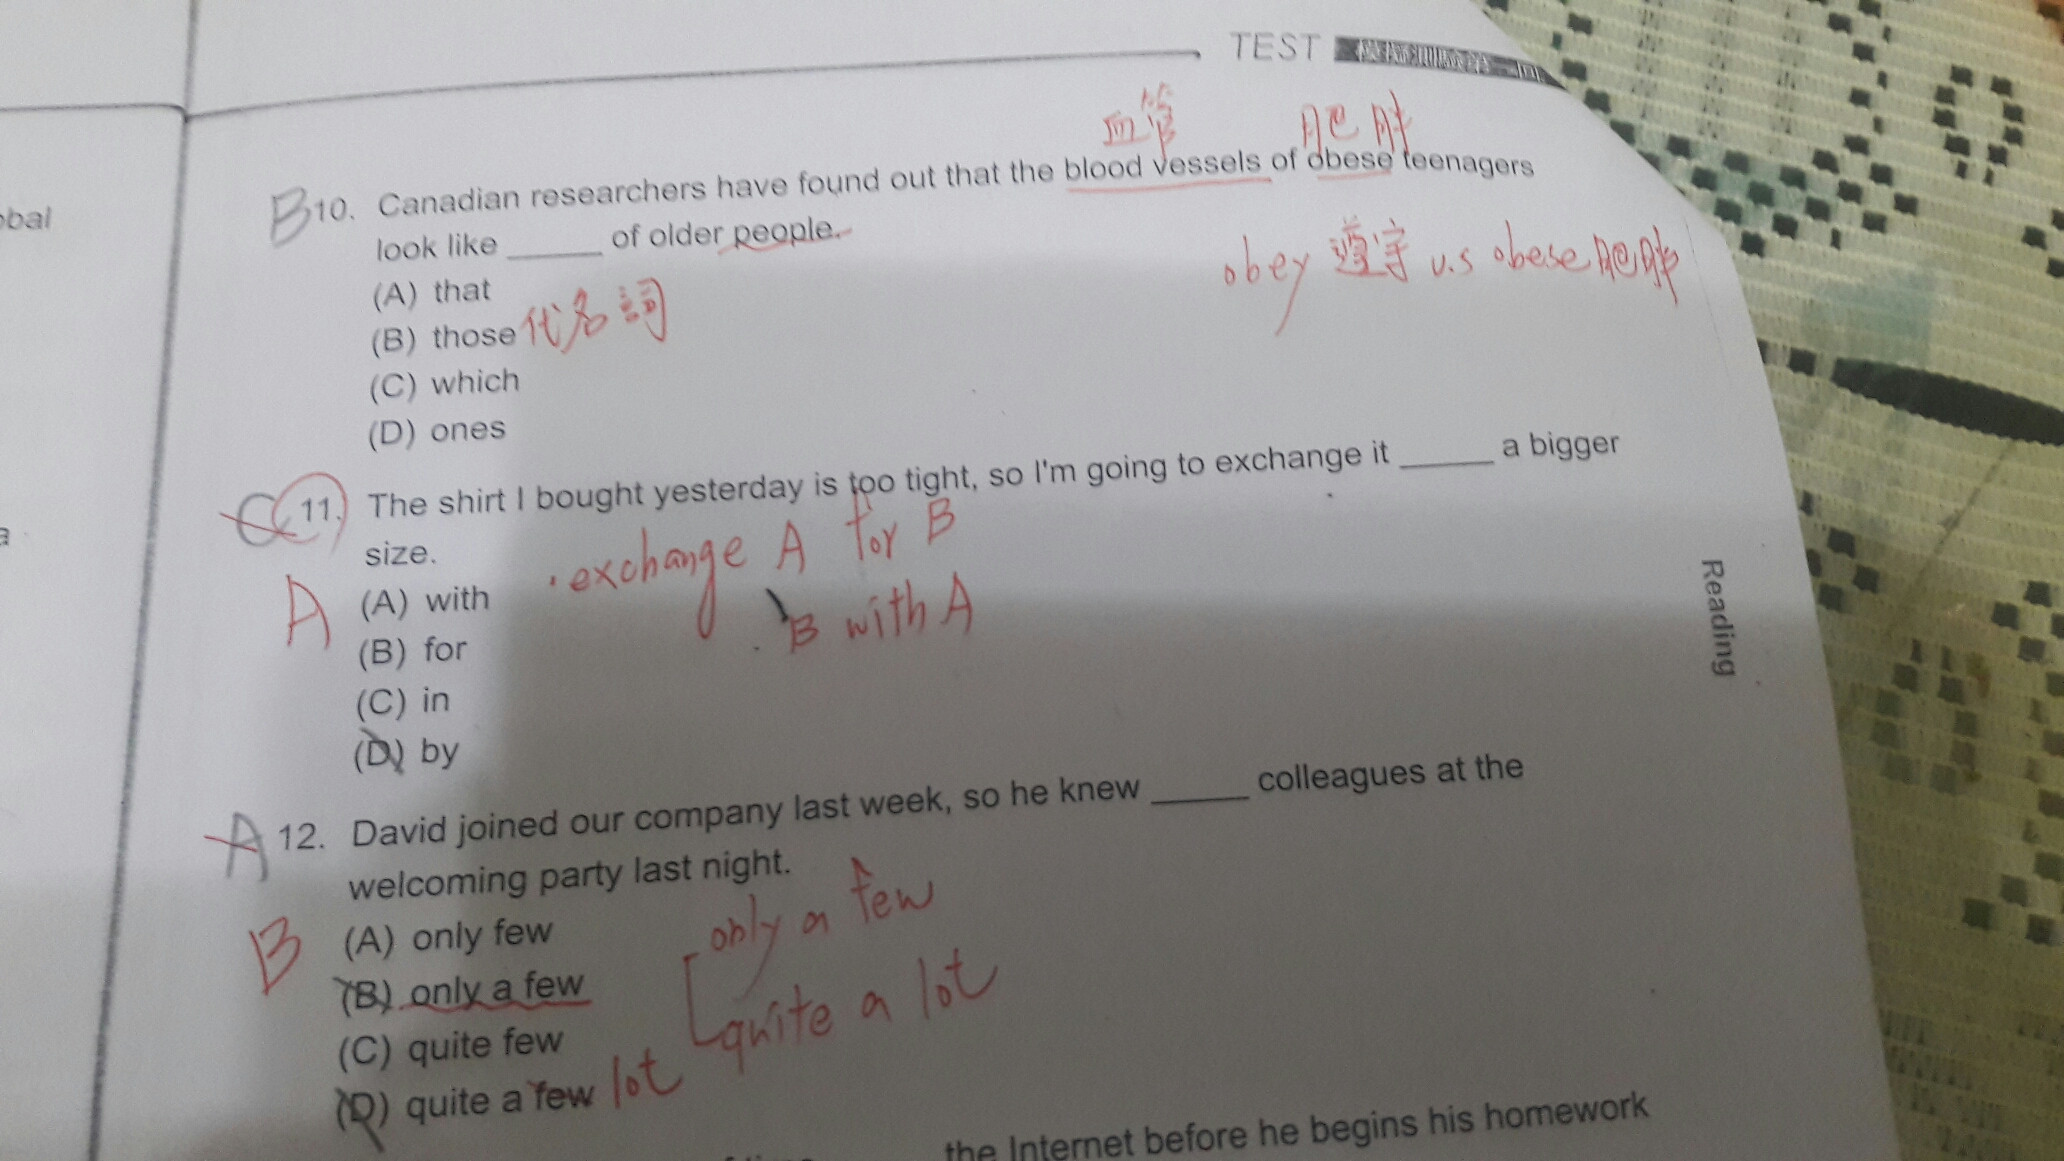 TEST
血管 肥胖
B 10. Canadian researchers have found out that the blood vessels of obese teenagers
look like ______ of older people.
obey 遵守 v.s obese 肥胖
(A) that
(B) those 代名詞
(C) which
(D) ones
C 11. The shirt I bought yesterday is too tight, so I'm going to exchange it ______ a bigger
size.
· exchange A for B
A (A) with
B with A
(B) for
(C) in
(D) by
A 12. David joined our company last week, so he knew ______ colleagues at the
welcoming party last night.
only a few
B (A) only few
(B) only a few
quite a lot
(C) quite few
(D) quite a few lot
the Internet before he begins his homework
Reading
bal